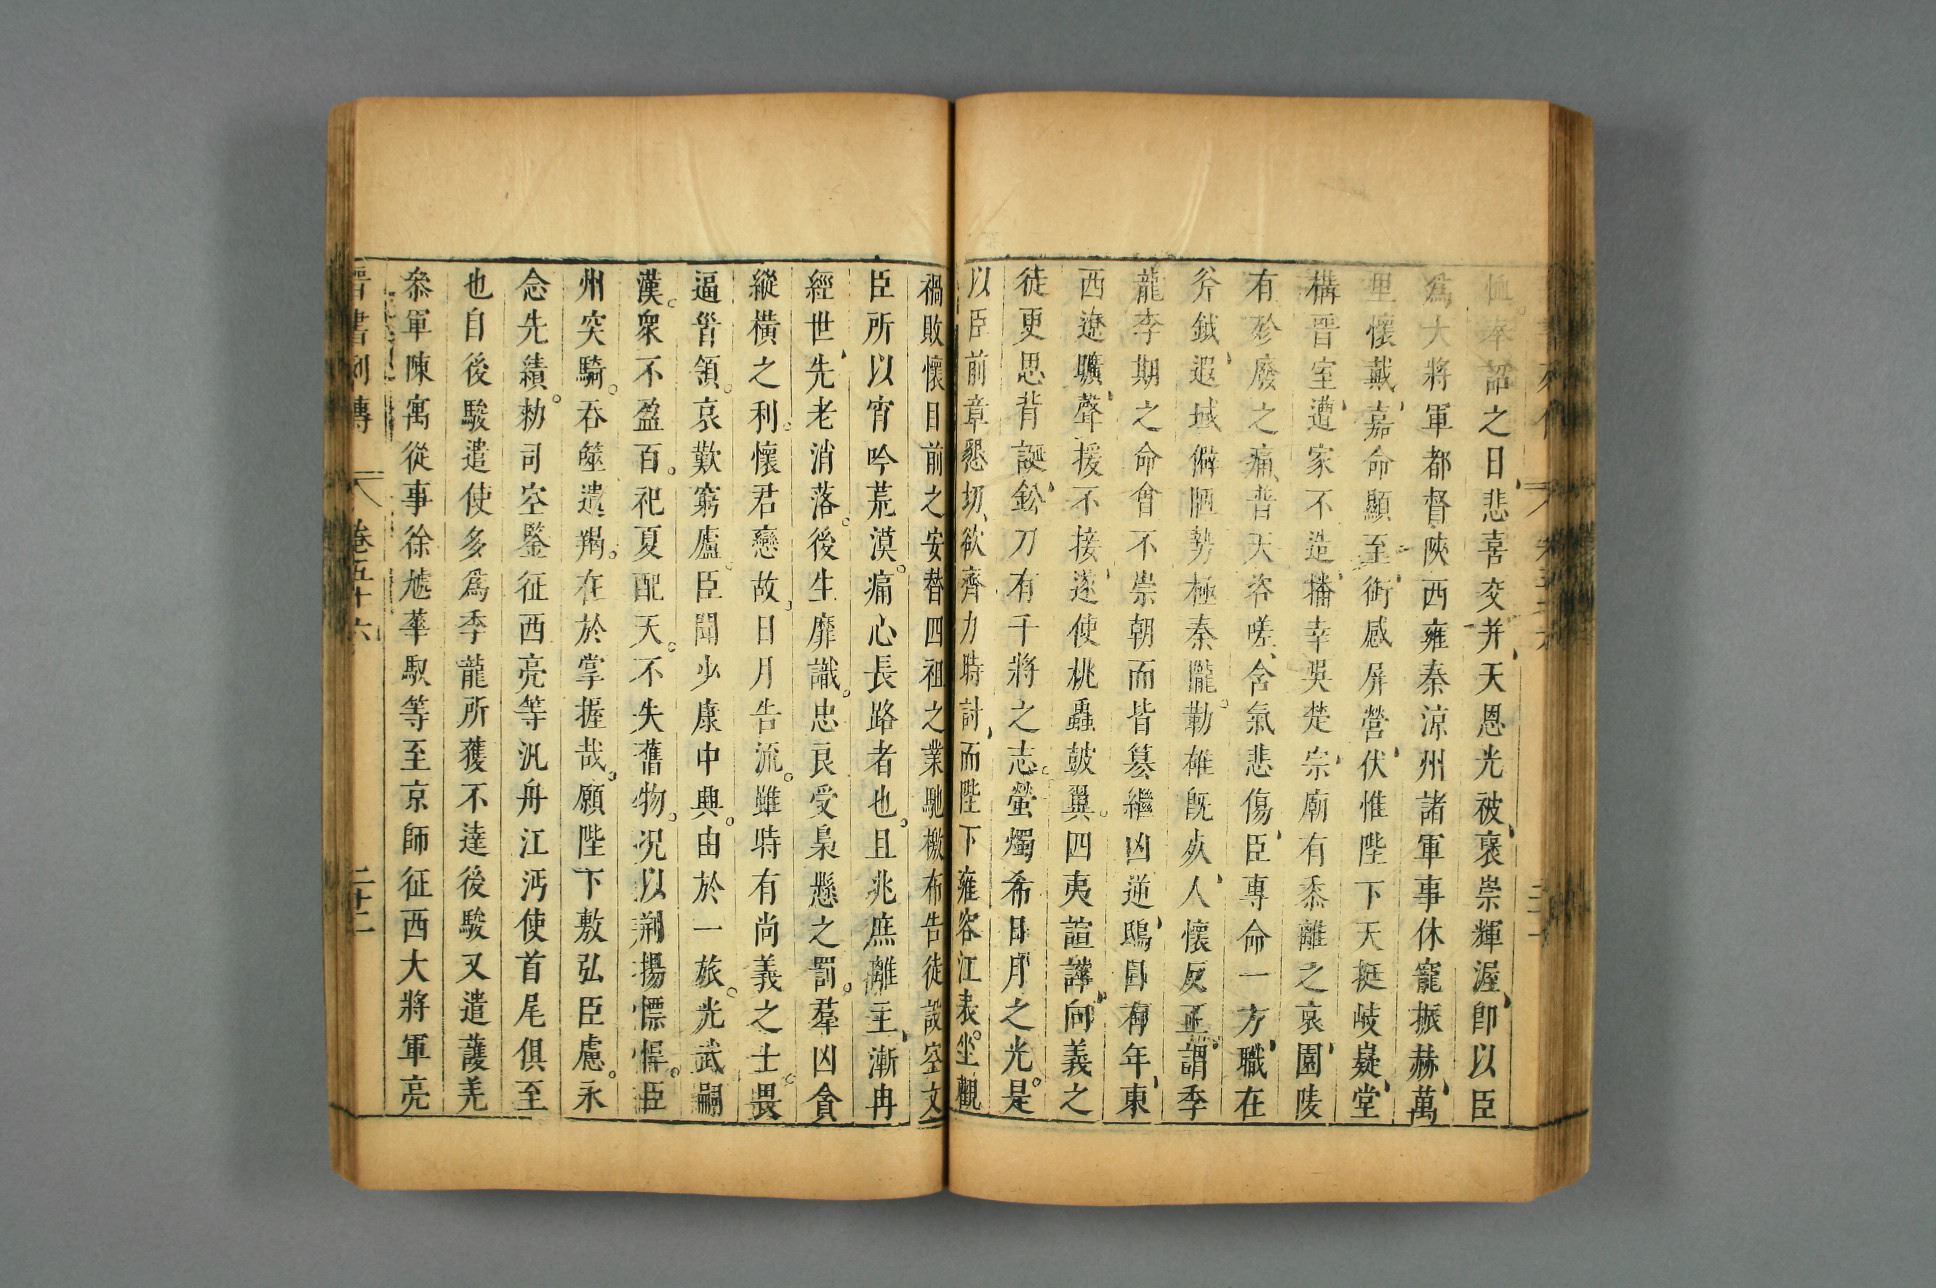 恤奉詔之日悲喜交并天恩光被襃崇輝渥卽以臣
爲大將軍都督陝西雍秦涼州諸軍事休寵振赫萬
里懷戴嘉命顯至銜感屏營伏惟陛下天挺岐嶷堂
構晉室遭家不造播幸吳楚宗廟有黍離之哀園陵
有殄廢之痛普天咨嗟含氣悲傷臣專命一方職在
斧鉞遐域僻陋勢極秦隴勒雄旣死人懷反正謂季
龍李期之命曾不崇朝而皆篡繼凶逆鴟目有年東
西遼曠聲援不接遂使桃蟲鼓翼四夷諠譁向義之
徒更思背誕鉛刀有干將之志螢燭希日月之光是
以臣前章懇切欲齊力時討而陛下雍容江表坐觀
禍敗懷目前之安替四祖之業馳檄布告徒設空文
臣所以宵吟荒漠痛心長路者也且兆庶離主漸冉
經世先老消落後生靡識忠良受梟懸之罰羣凶貪
縱橫之利懷君戀故日月告流雖時有尚義之士畏
逼首領哀歎窮廬臣聞少康中興由於一旅光武嗣
漢衆不盈百祀夏配天不失舊物況以荆揚慓悍臣
州突騎吞噬遺羯在於掌握哉願陛下敷弘臣慮永
念先績勑司空鑒征西亮等汎舟江沔使首尾俱至
也自後駿遣使多爲季龍所獲不達後駿又遣護羌
叅軍陳寓從事徐虓華馭等至京師征西大將軍亮
晉書列傳 卷五十六 二十二